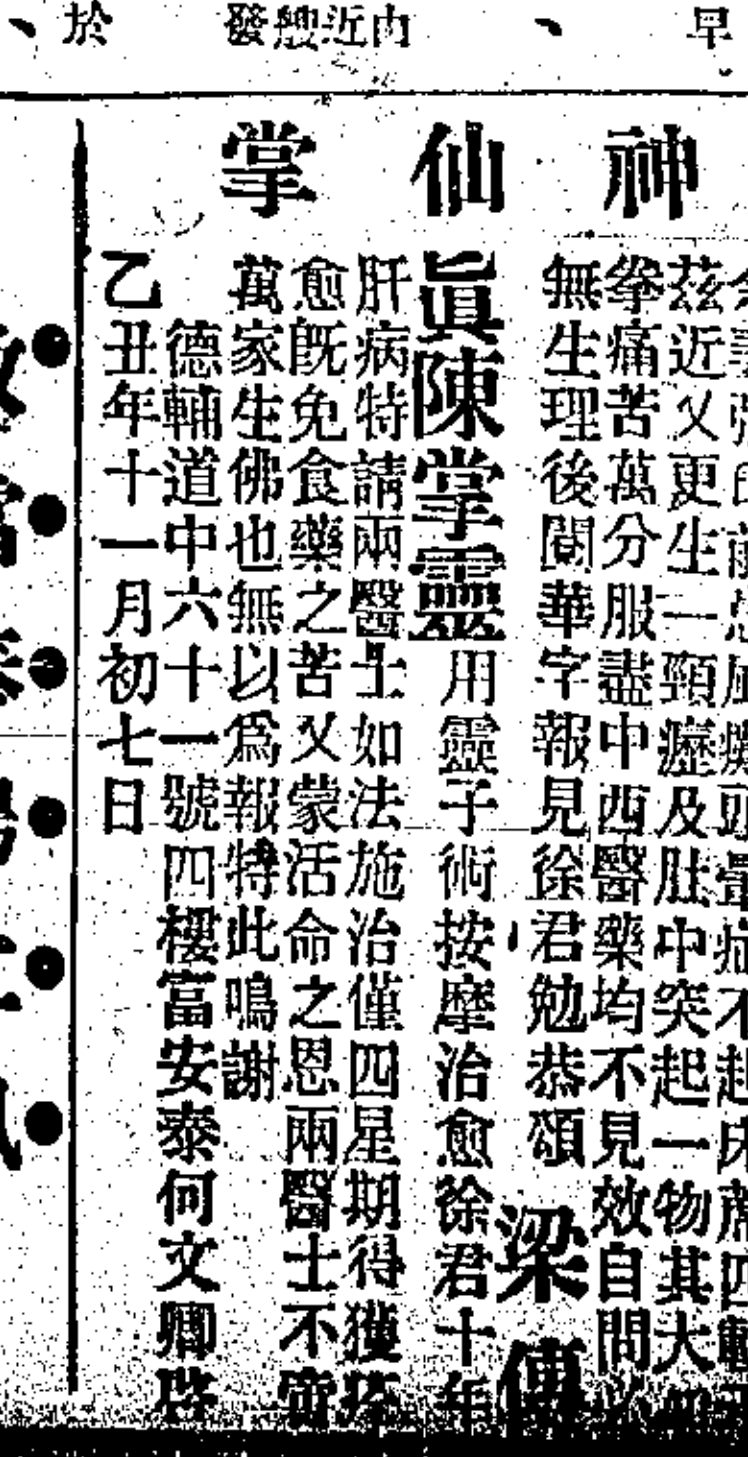 早
內近艘發
於
神仙掌
茲近又更生一頸癧及肚中突起一物其大如
拳痛苦萬分服盡中西醫藥均不見效自問必
無生理後閱華字報見徐君勉恭頌梁傳
眞陳掌靈用靈子術按摩治愈徐君十年
肝病特請兩醫士如法施治僅四星期得獲痊
愈既免食藥之苦又蒙活命之恩兩醫士不啻
萬家生佛也無以爲報特此鳴謝
德輔道中六十一號四樓富安泰何文卿啓
乙丑年十一月初七日